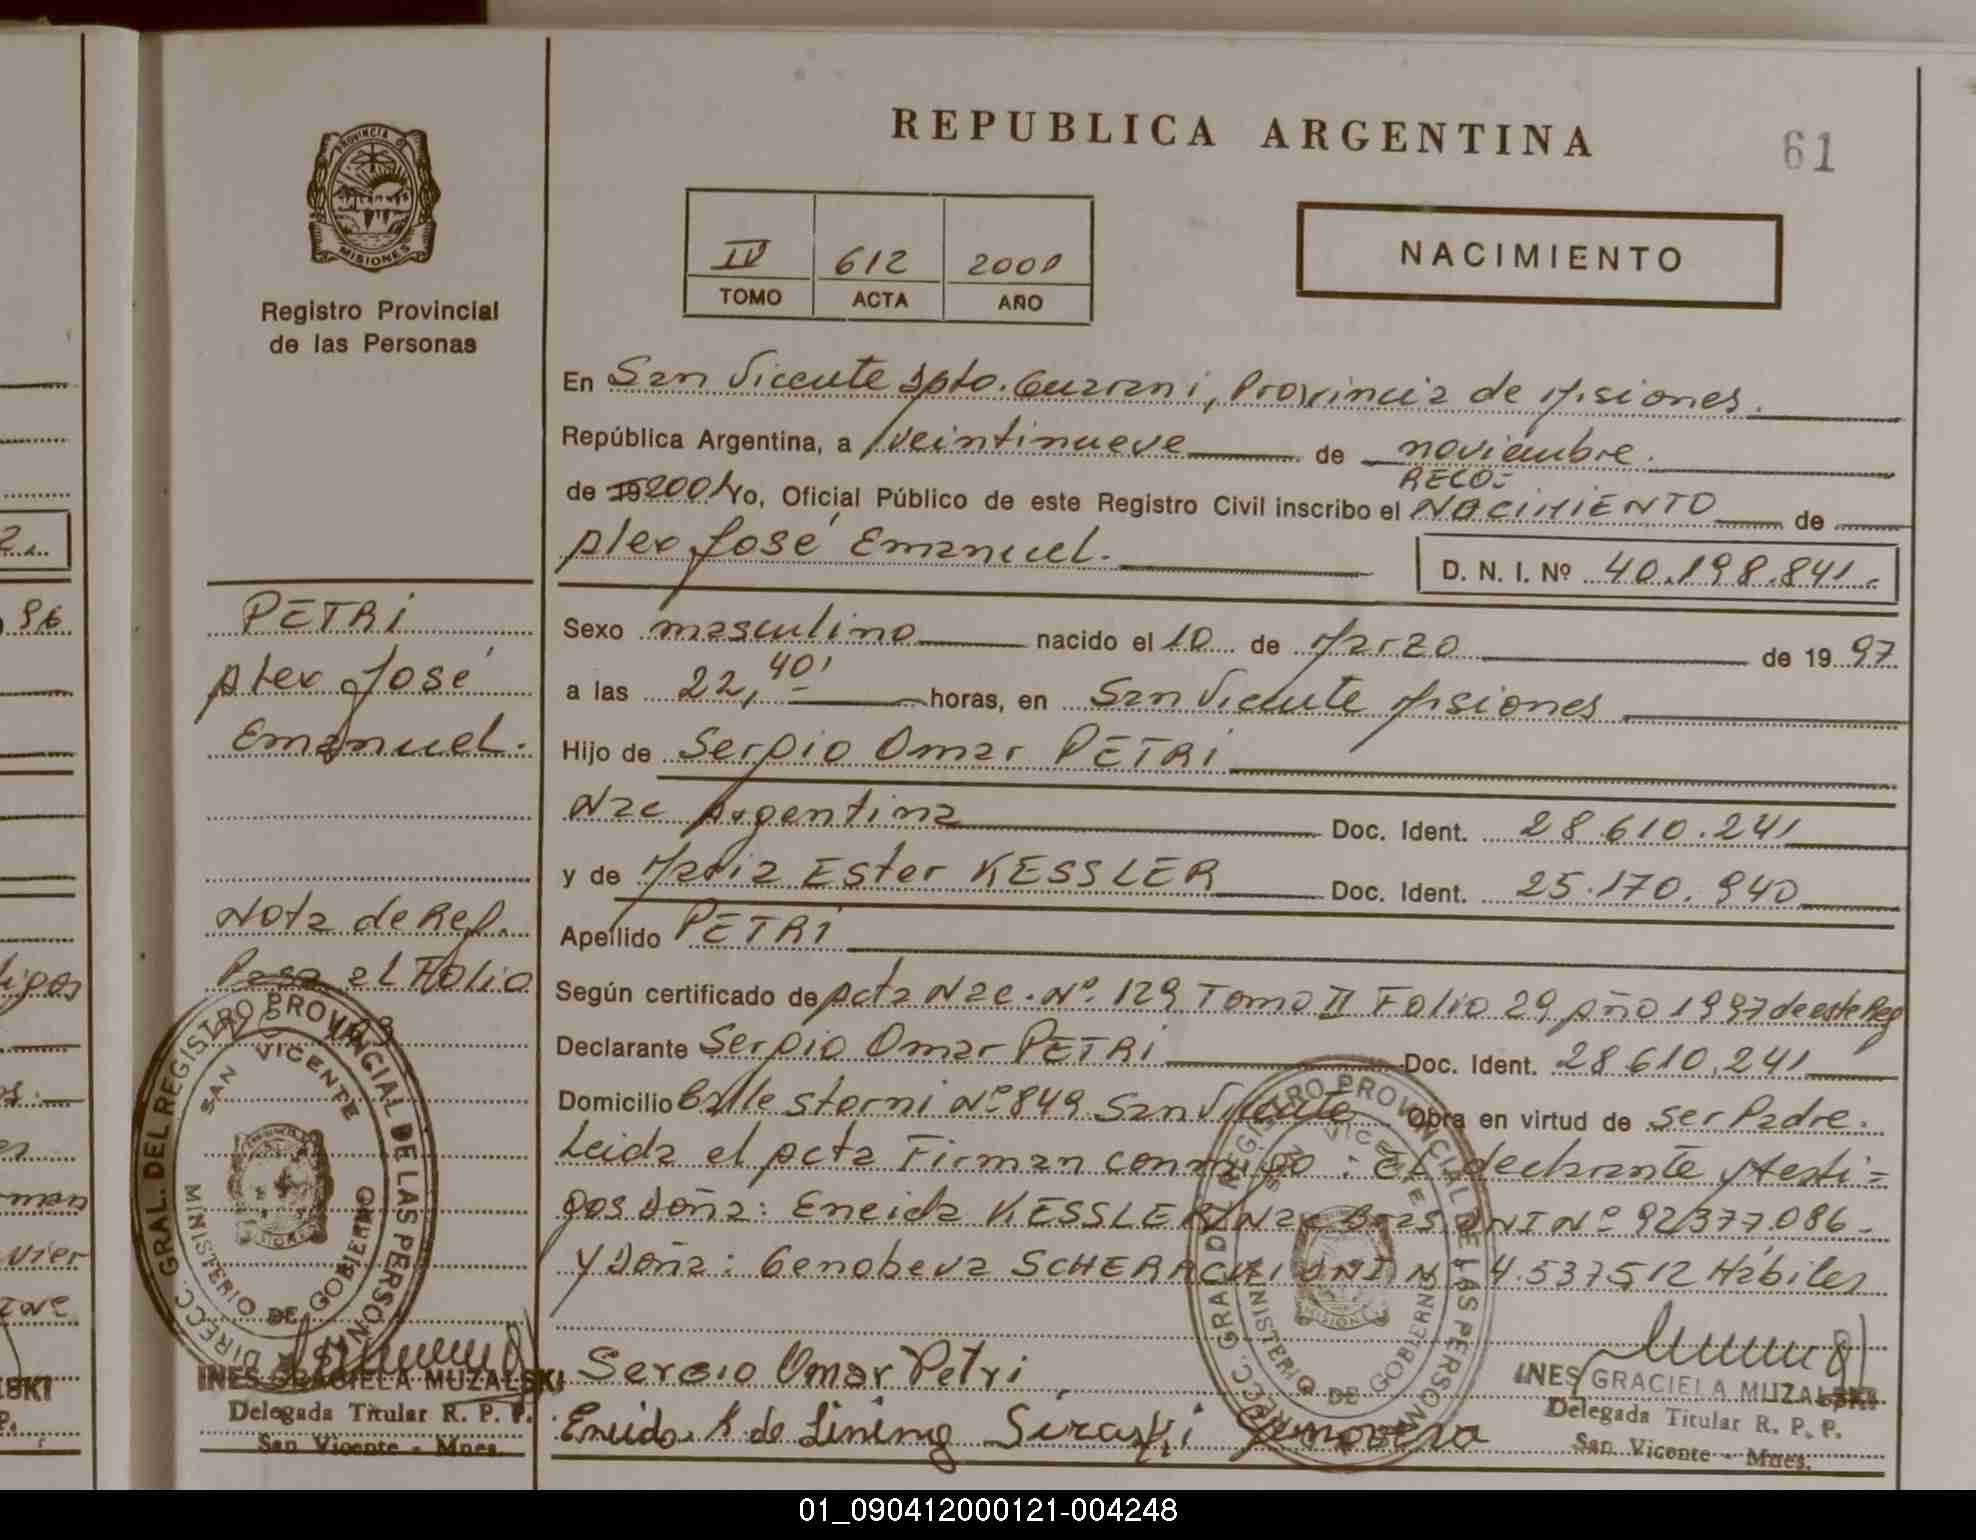 REPUBLICA ARGENTINA
61
PROVINCIA
MISIONES
Registro Provincial
de las Personas
IV 612 2000
TOMO ACTA AÑO
NACIMIENTO
En San Vicente Dpto. Guarani, Provincia de Misiones.
República Argentina, a veintinueve de noviembre.
RECO=
de 19 2000 Yo, Oficial Público de este Registro Civil inscribo el NACIMIENTO de
Alex José Emanuel.
D. N. I. Nº 40.198.841.
PETRI
Alex José
Emanuel.
Sexo masculino nacido el 10 de Marzo de 19 97
a las 22,40' horas, en San Vicente Misiones
Hijo de Sergio Omar PETRI
Nac Argentina Doc. Ident. 28.610.241
y de Maria Ester KESSLER Doc. Ident. 25.170.940
Apellido PETRI
Nota de Ref.
Pasa al Folio
Según certificado de Acta Nac. Nº 129 Tomo II Folio 29 Año 1997 de este Reg
Declarante Sergio Omar PETRI Doc. Ident. 28.610.241
Domicilio Calle Storni Nº 849 San Vicente Obra en virtud de ser Padre.
Leida el Acta Firman conmigo: El declarante y testi=
gos Doña: Eneida KESSLER Nac Bras DNI Nº 92377.086.
Y Doña: Genobeva SCHERACKI DNI Nº 4.537512 Hábiles
Sergio Omar Petri
Eneida K de Lining Siraski Genoveva
DIRECC. GRAL. DEL REGISTRO PROVINCIAL DE LAS PERSONAS
SAN VICENTE
MINISTERIO DE GOBIERNO
INES GRACIELA MUZALSKI
Delegada Titular R. P. P.
San Vicente - Mnes.
DIRECC. GRAL. DEL REGISTRO PROVINCIAL DE LAS PERSONAS
VICENTE
MINISTERIO DE GOBIERNO
MISIONES
INES GRACIELA MUZALSKI
Delegada Titular R. P. P.
San Vicente - Mnes.
01_090412000121-004248